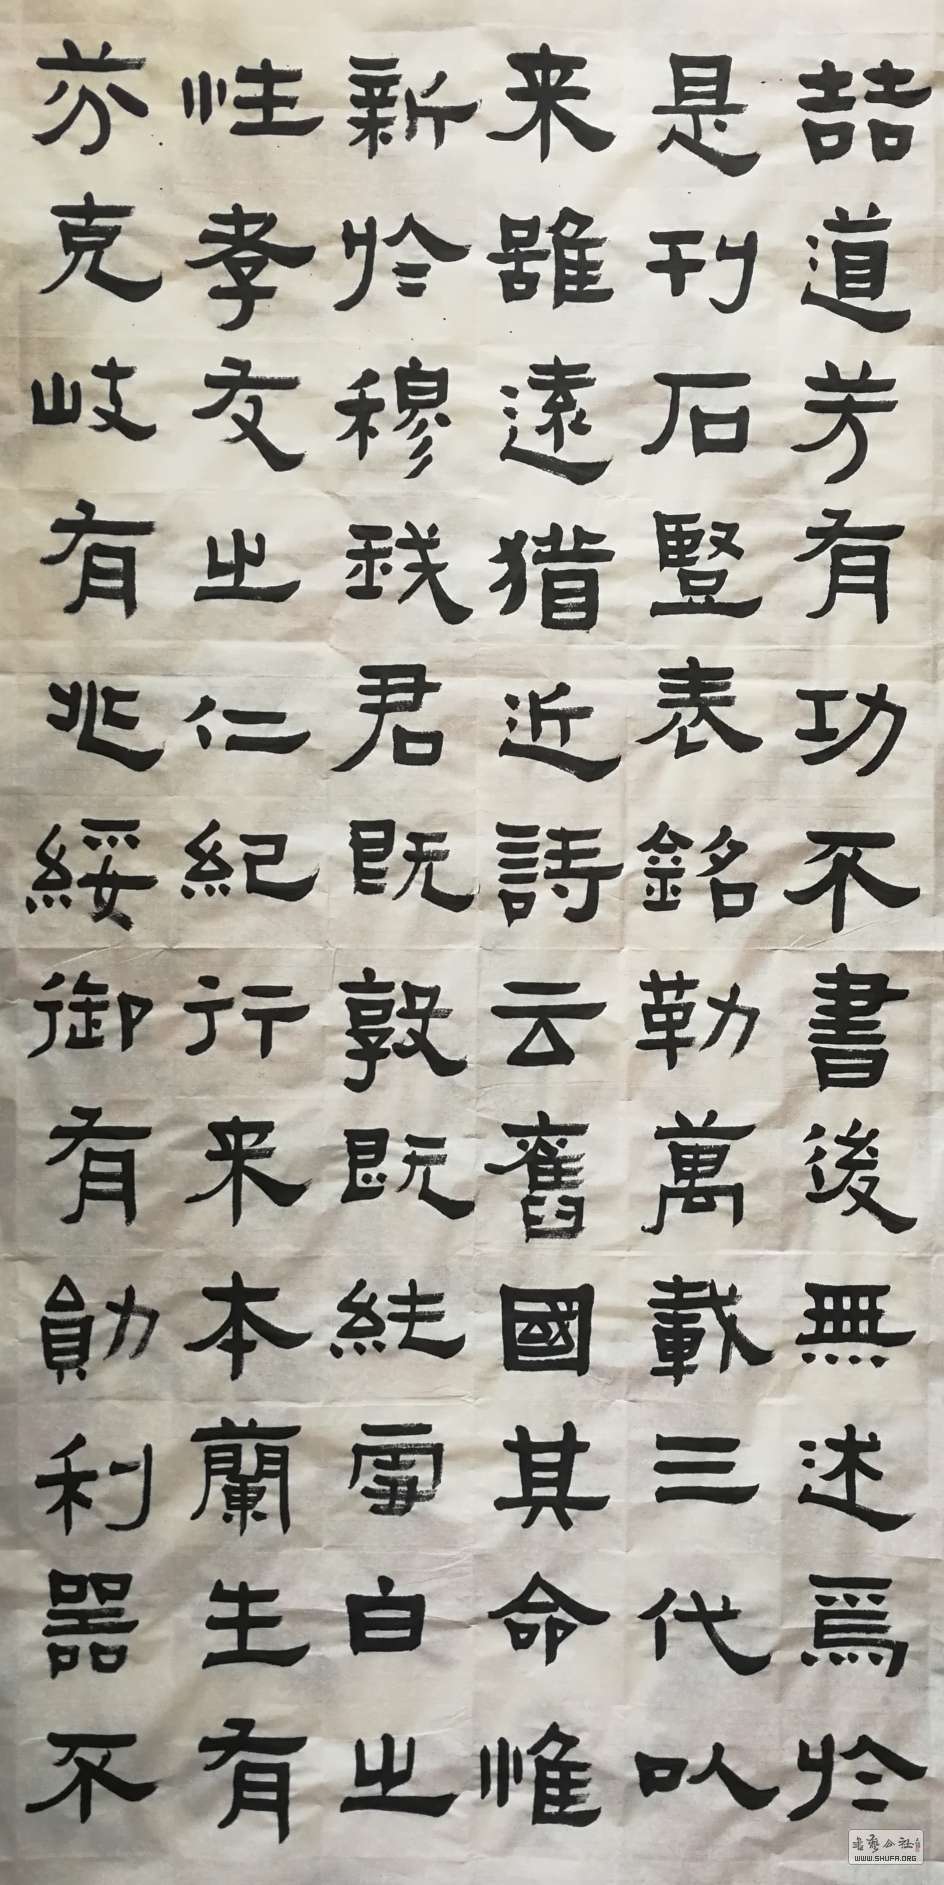 喆道芳有功不書後無述焉於
是刊石豎表銘勒萬載三代以
来雖遠猶近詩云舊國其命惟
新於穆我君既敦既純雪白之
性孝友之仁紀行来本蘭生有
芬克岐有兆綏御有勛利器不
WWW.SHUFA.ORG